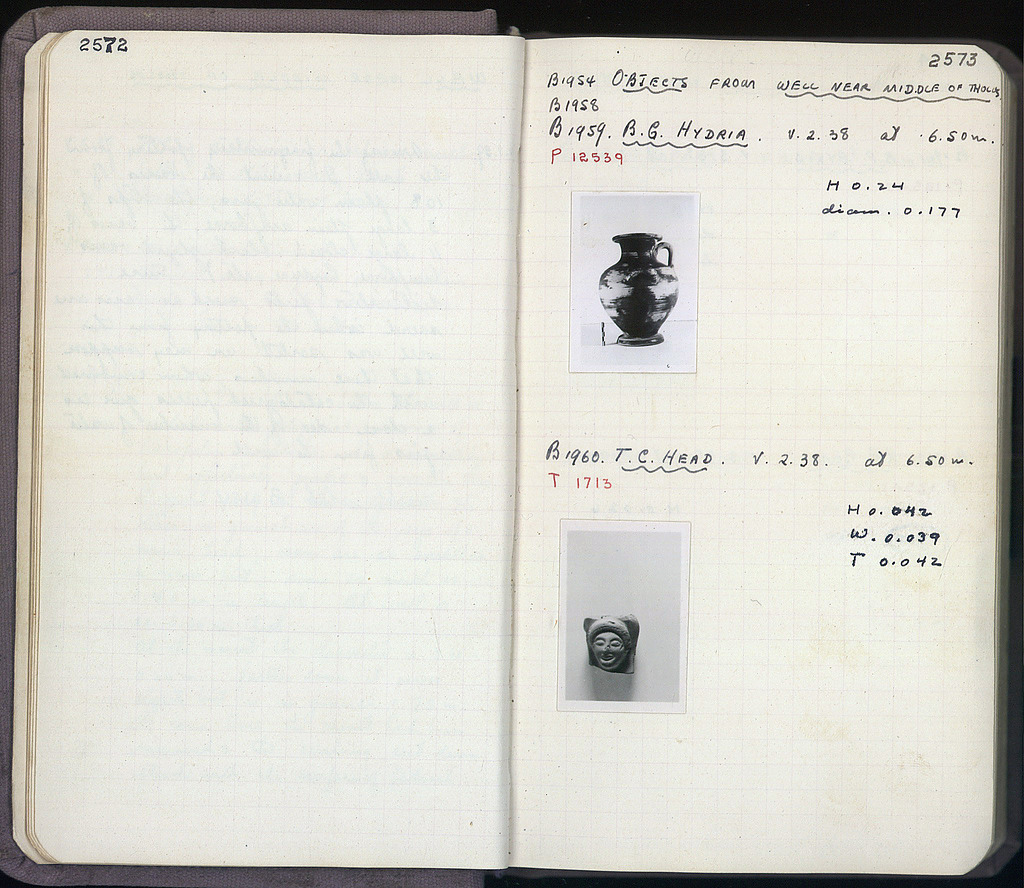 2572
2573
B1954 OBJECTS FROM WELL NEAR MIDDLE OF THOLOS
B1958
B1959. B.G. HYDRIA. V.2.38 at 6.50m.
P 12539
H 0.24
diam. 0.177
B1960. T.C. HEAD. V.2.38. at 6.50m.
T 1713
H 0.042
W. 0.039
T 0.042